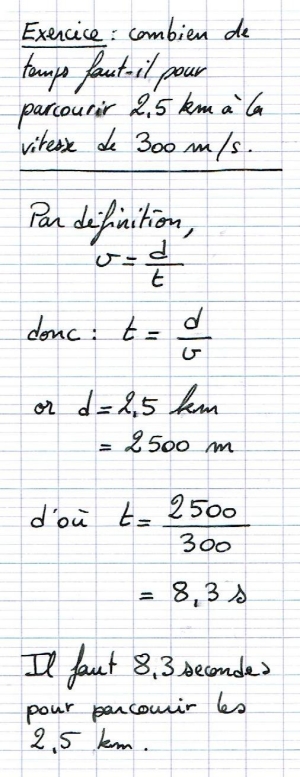 Exercice : combien de
temps faut-il pour
parcourir 2,5 km à la
vitesse de 300 m/s.
Par définition,
v = d/t
donc : t = d/v
or d = 2,5 km
= 2500 m
d'où t = 2500/300
= 8,3 s
Il faut 8,3 secondes
pour parcourir les
2,5 km.